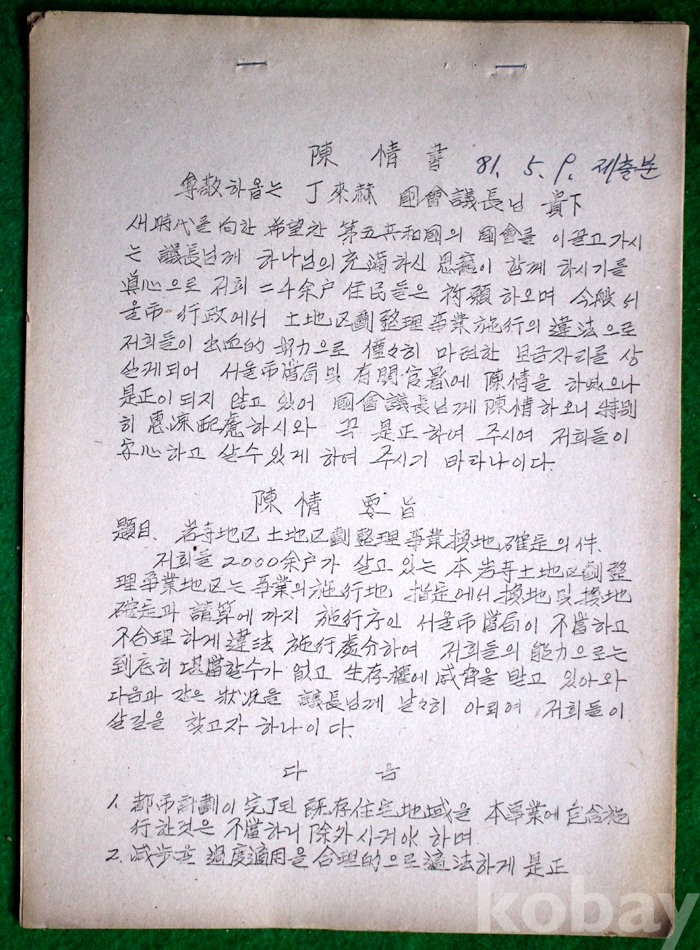 陳 情 書 81. 5. 9. 제출분
尊敬하옵는 丁來赫 國會議長님 貴下
새時代를 向한 希望찬 第五共和國의 國會를 이끌고가시
는 議長님께 하나님의 充滿하신 恩寵이 함께 하시기를
眞心으로 저희 二千余户 住民들은 祈願하오며 今般 서
울市 行政에서 土地区劃整理事業施行의 違法으로
저희들이 出血的 努力으로 僅々히 마련한 보금자리를 상
실케되어 서울市當局및 有関官署에 陳情을 하였으나
是正이 되지 않고 있어 國會議長님께 陳情하오니 特別
히 惠諒配慮하시와 꼭 是正하여 주시여 저희들이
安心하고 살수있게 하여 주시기 바라나이다.
陳情 要旨
題目. 岩寺地区 土地区劃整理事業換地確定의件.
저희들 2000余户가 살고 있는 本岩寺土地区劃整
理事業地区는 事業의施行地 指定에서 換地 및 換地
確定과 請算에까지 施行庁인 서울市當局이 不當하고
不合理하게 違法 施行處分하여 저희들의 能力으로는
到底히 堪當할수가 없고 生存權에 威脅을 받고 있아와
다음과 같은 狀況을 議長님께 낱낱히 아뢰여 저희들이
살길을 찾고자 하나이다.
다 음
1. 都市計劃이 完了된 既存住宅地域을 本事業에 包含施
行한것은 不當하니 除外시켜야 하며
2. 減步率 過度適用을 合理的으로 適法하게 是正
kobay